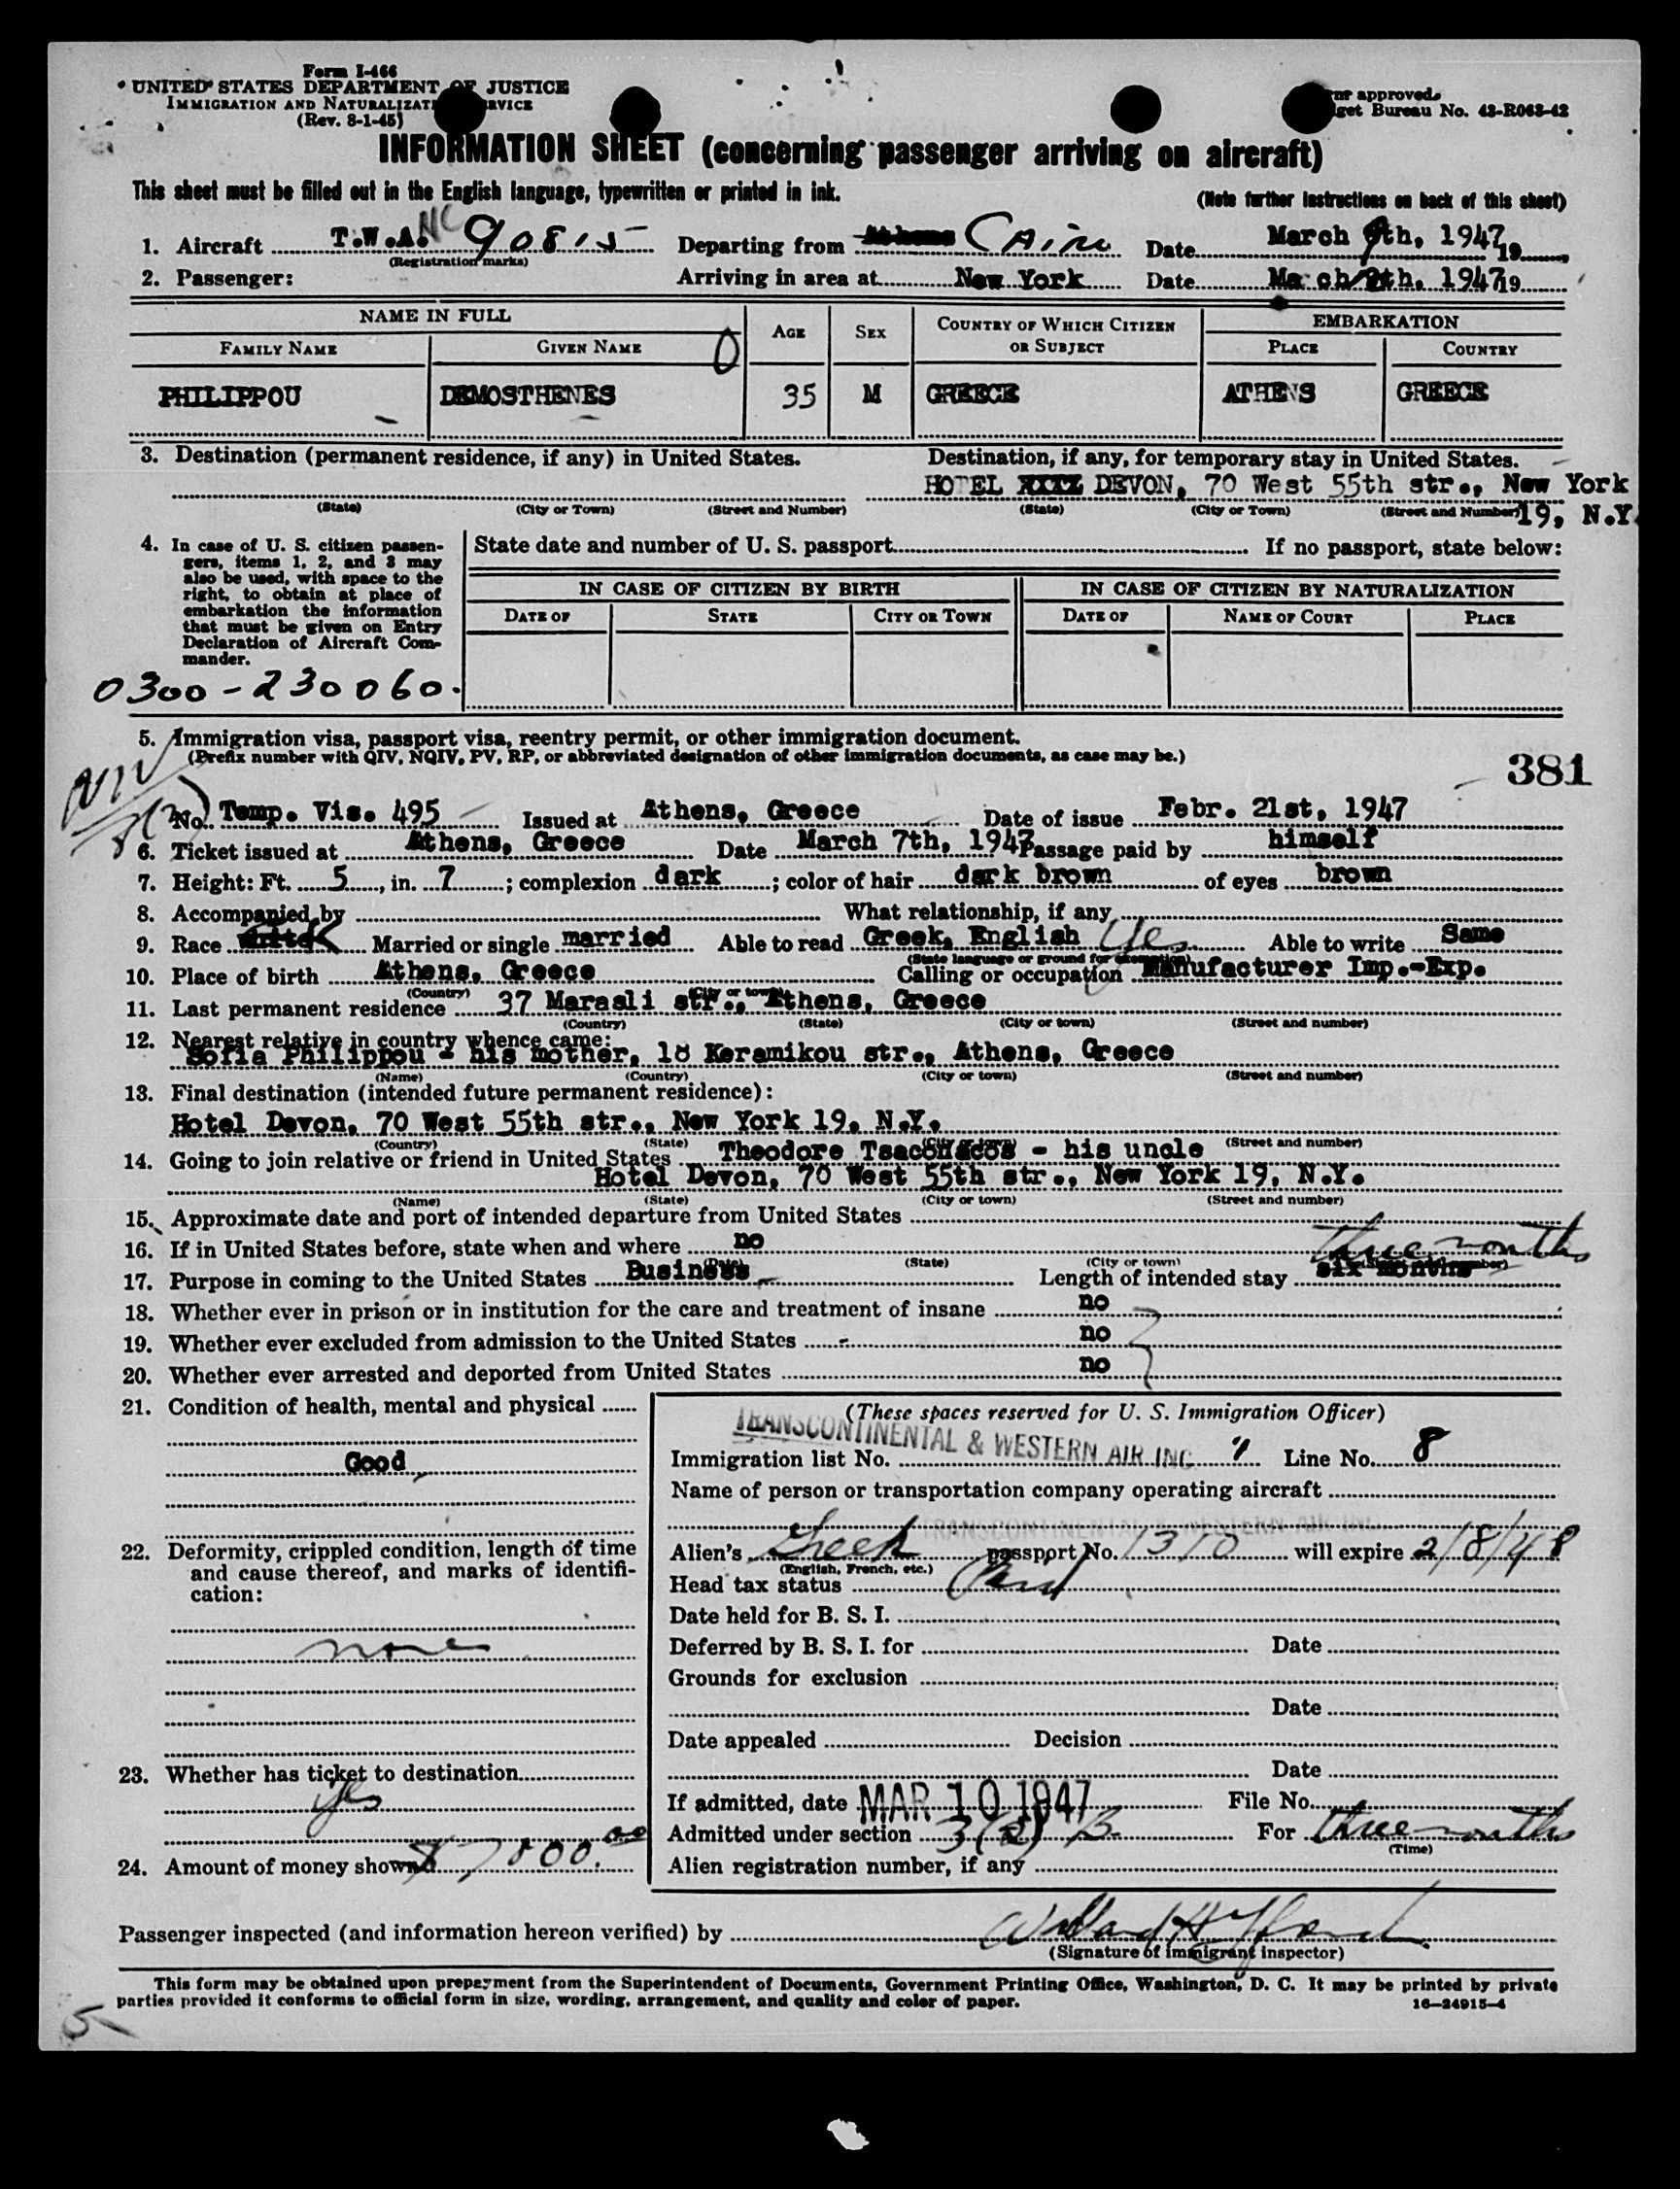 Form I-466
UNITED STATES DEPARTMENT OF JUSTICE
IMMIGRATION AND NATURALIZATI RVICE
(Rev. 8-1-45)
approved.
get Bureau No. 43-R063-42
INFORMATION SHEET (concerning passenger arriving on aircraft)
This sheet must be filled out in the English language, typewritten or printed in ink.
(Note further instructions on back of this sheet)
1. Aircraft T.W.A. NC 90815 Departing from Cairo Date March 9th, 1947 19
(Registration marks)
2. Passenger: Arriving in area at New York Date March 9th, 1947 19
NAME IN FULL AGE SEX COUNTRY OF WHICH CITIZEN OR SUBJECT EMBARKATION
FAMILY NAME GIVEN NAME PLACE COUNTRY
PHILIPPOU DEMOSTHENES 35 M GREECE ATHENS GREECE
3. Destination (permanent residence, if any) in United States. Destination, if any, for temporary stay in United States.
HOTEL XXXX DEVON, 70 West 55th str., New York
(State) (City or Town) (Street and Number) (State) (City or Town) (Street and Number) 19, N.Y.
4. In case of U. S. citizen passen-
gers, items 1, 2, and 3 may
also be used, with space to the
right, to obtain at place of
embarkation the information
that must be given on Entry
Declaration of Aircraft Com-
mander.
State date and number of U. S. passport If no passport, state below:
IN CASE OF CITIZEN BY BIRTH IN CASE OF CITIZEN BY NATURALIZATION
DATE OF STATE CITY OR TOWN DATE OF NAME OF COURT PLACE
0300-230060.
5. Immigration visa, passport visa, reentry permit, or other immigration document.
(Prefix number with QIV, NQIV, PV, RP, or abbreviated designation of other immigration documents, as case may be.)
381
No. Temp. Vis. 495 Issued at Athens, Greece Date of issue Febr. 21st, 1947
6. Ticket issued at Athens, Greece Date March 7th, 1947 Passage paid by himself
7. Height: Ft. 5, in. 7; complexion dark; color of hair dark brown of eyes brown
8. Accompanied by What relationship, if any
9. Race white Married or single married Able to read Greek, English Yes Able to write Same
(State language or ground for exemption)
10. Place of birth Athens, Greece Calling or occupation Manufacturer Imp.-Exp.
(Country) (City or town)
11. Last permanent residence 37 Marasli str., Athens, Greece
(Country) (State) (City or town) (Street and number)
12. Nearest relative in country whence came:
Sofia Philippou - his mother, 18 Keramikou str., Athens, Greece
(Name) (Country) (City or town) (Street and number)
13. Final destination (intended future permanent residence):
Hotel Devon, 70 West 55th str., New York 19, N.Y.
(Country) (State) (City or town) (Street and number)
14. Going to join relative or friend in United States Theodore Tsaconacos - his uncle
Hotel Devon, 70 West 55th str., New York 19, N.Y.
(Name) (State) (City or town) (Street and number)
15. Approximate date and port of intended departure from United States
16. If in United States before, state when and where no
(Date) (State) (City or town) (Street and number)
three months
17. Purpose in coming to the United States Business Length of intended stay six months
18. Whether ever in prison or in institution for the care and treatment of insane no
19. Whether ever excluded from admission to the United States no
20. Whether ever arrested and deported from United States no
21. Condition of health, mental and physical
Good
22. Deformity, crippled condition, length of time
and cause thereof, and marks of identifi-
cation:
none
23. Whether has ticket to destination
yes
24. Amount of money shown $7000.00
(These spaces reserved for U. S. Immigration Officer)
TRANSCONTINENTAL & WESTERN AIR INC
Immigration list No. 1 Line No. 8
Name of person or transportation company operating aircraft
TRANSCONTINENTAL & WESTERN AIR INC
Alien's Greek passport No. 1310 will expire 2/8/48
(English, French, etc.)
Head tax status Paid
Date held for B. S. I.
Deferred by B. S. I. for Date
Grounds for exclusion
Date
Date appealed Decision
Date
If admitted, date MAR 10 1947 File No.
Admitted under section 3(2) B. For three months
(Time)
Alien registration number, if any
Passenger inspected (and information hereon verified) by
(Signature of immigrant inspector)
This form may be obtained upon prepayment from the Superintendent of Documents, Government Printing Office, Washington, D. C. It may be printed by private
parties provided it conforms to official form in size, wording, arrangement, and quality and color of paper.
16—24915-4
5